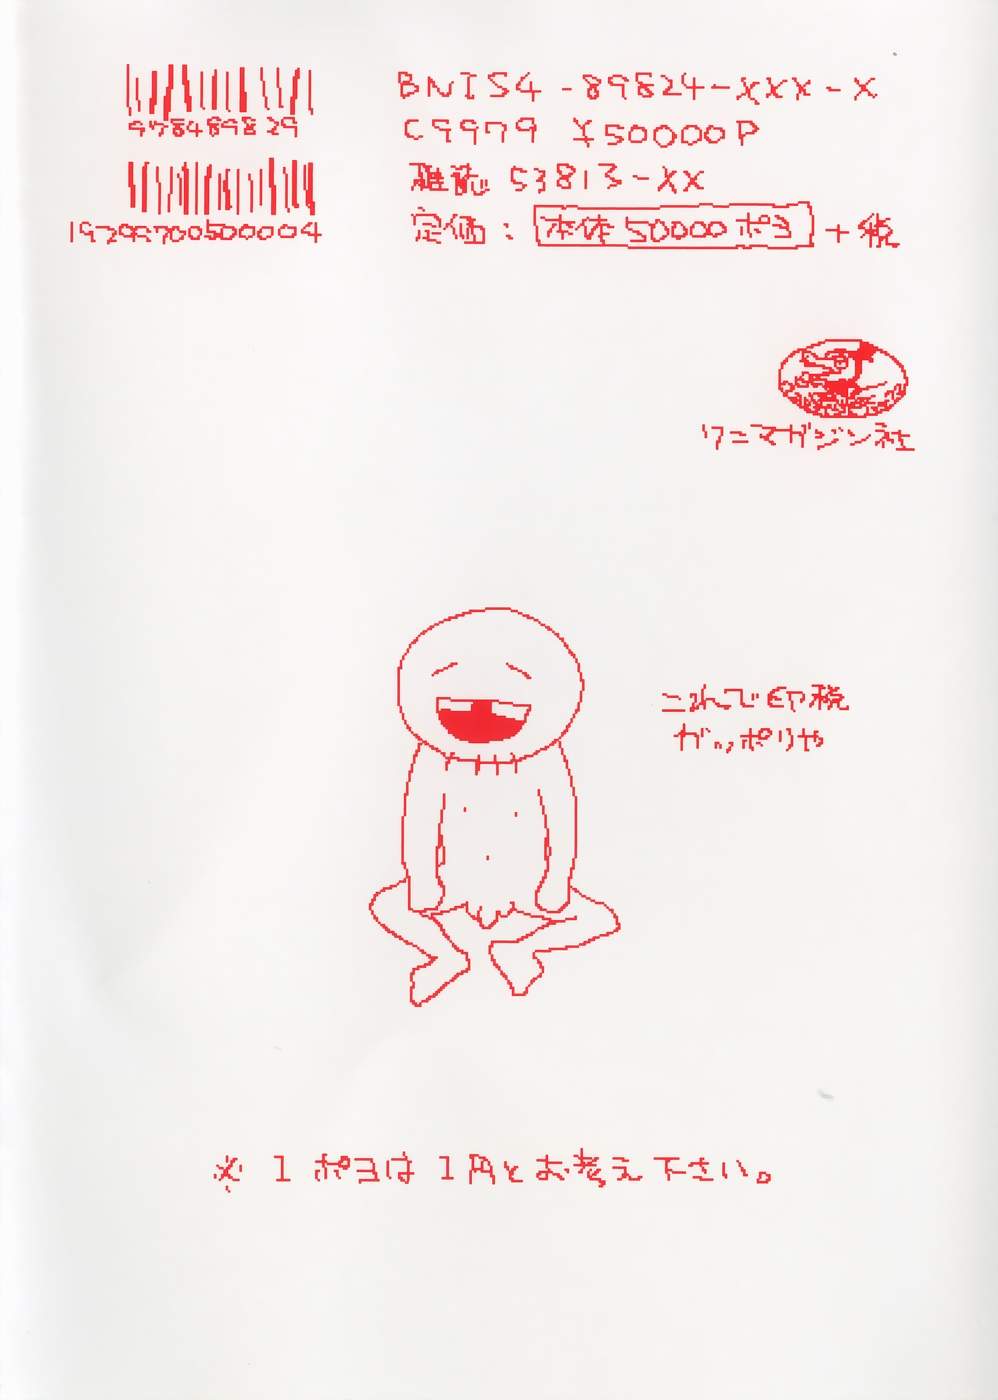 BNIS4-89824-XXX-X
978489829
C9979 ¥50000P
雑誌 53813-XX
定価: 本体 50000 ポヨ + 税
ワニマガジン社
これで印税
ガッポリや
※ 1 ポヨは 1 円とお考え下さい。